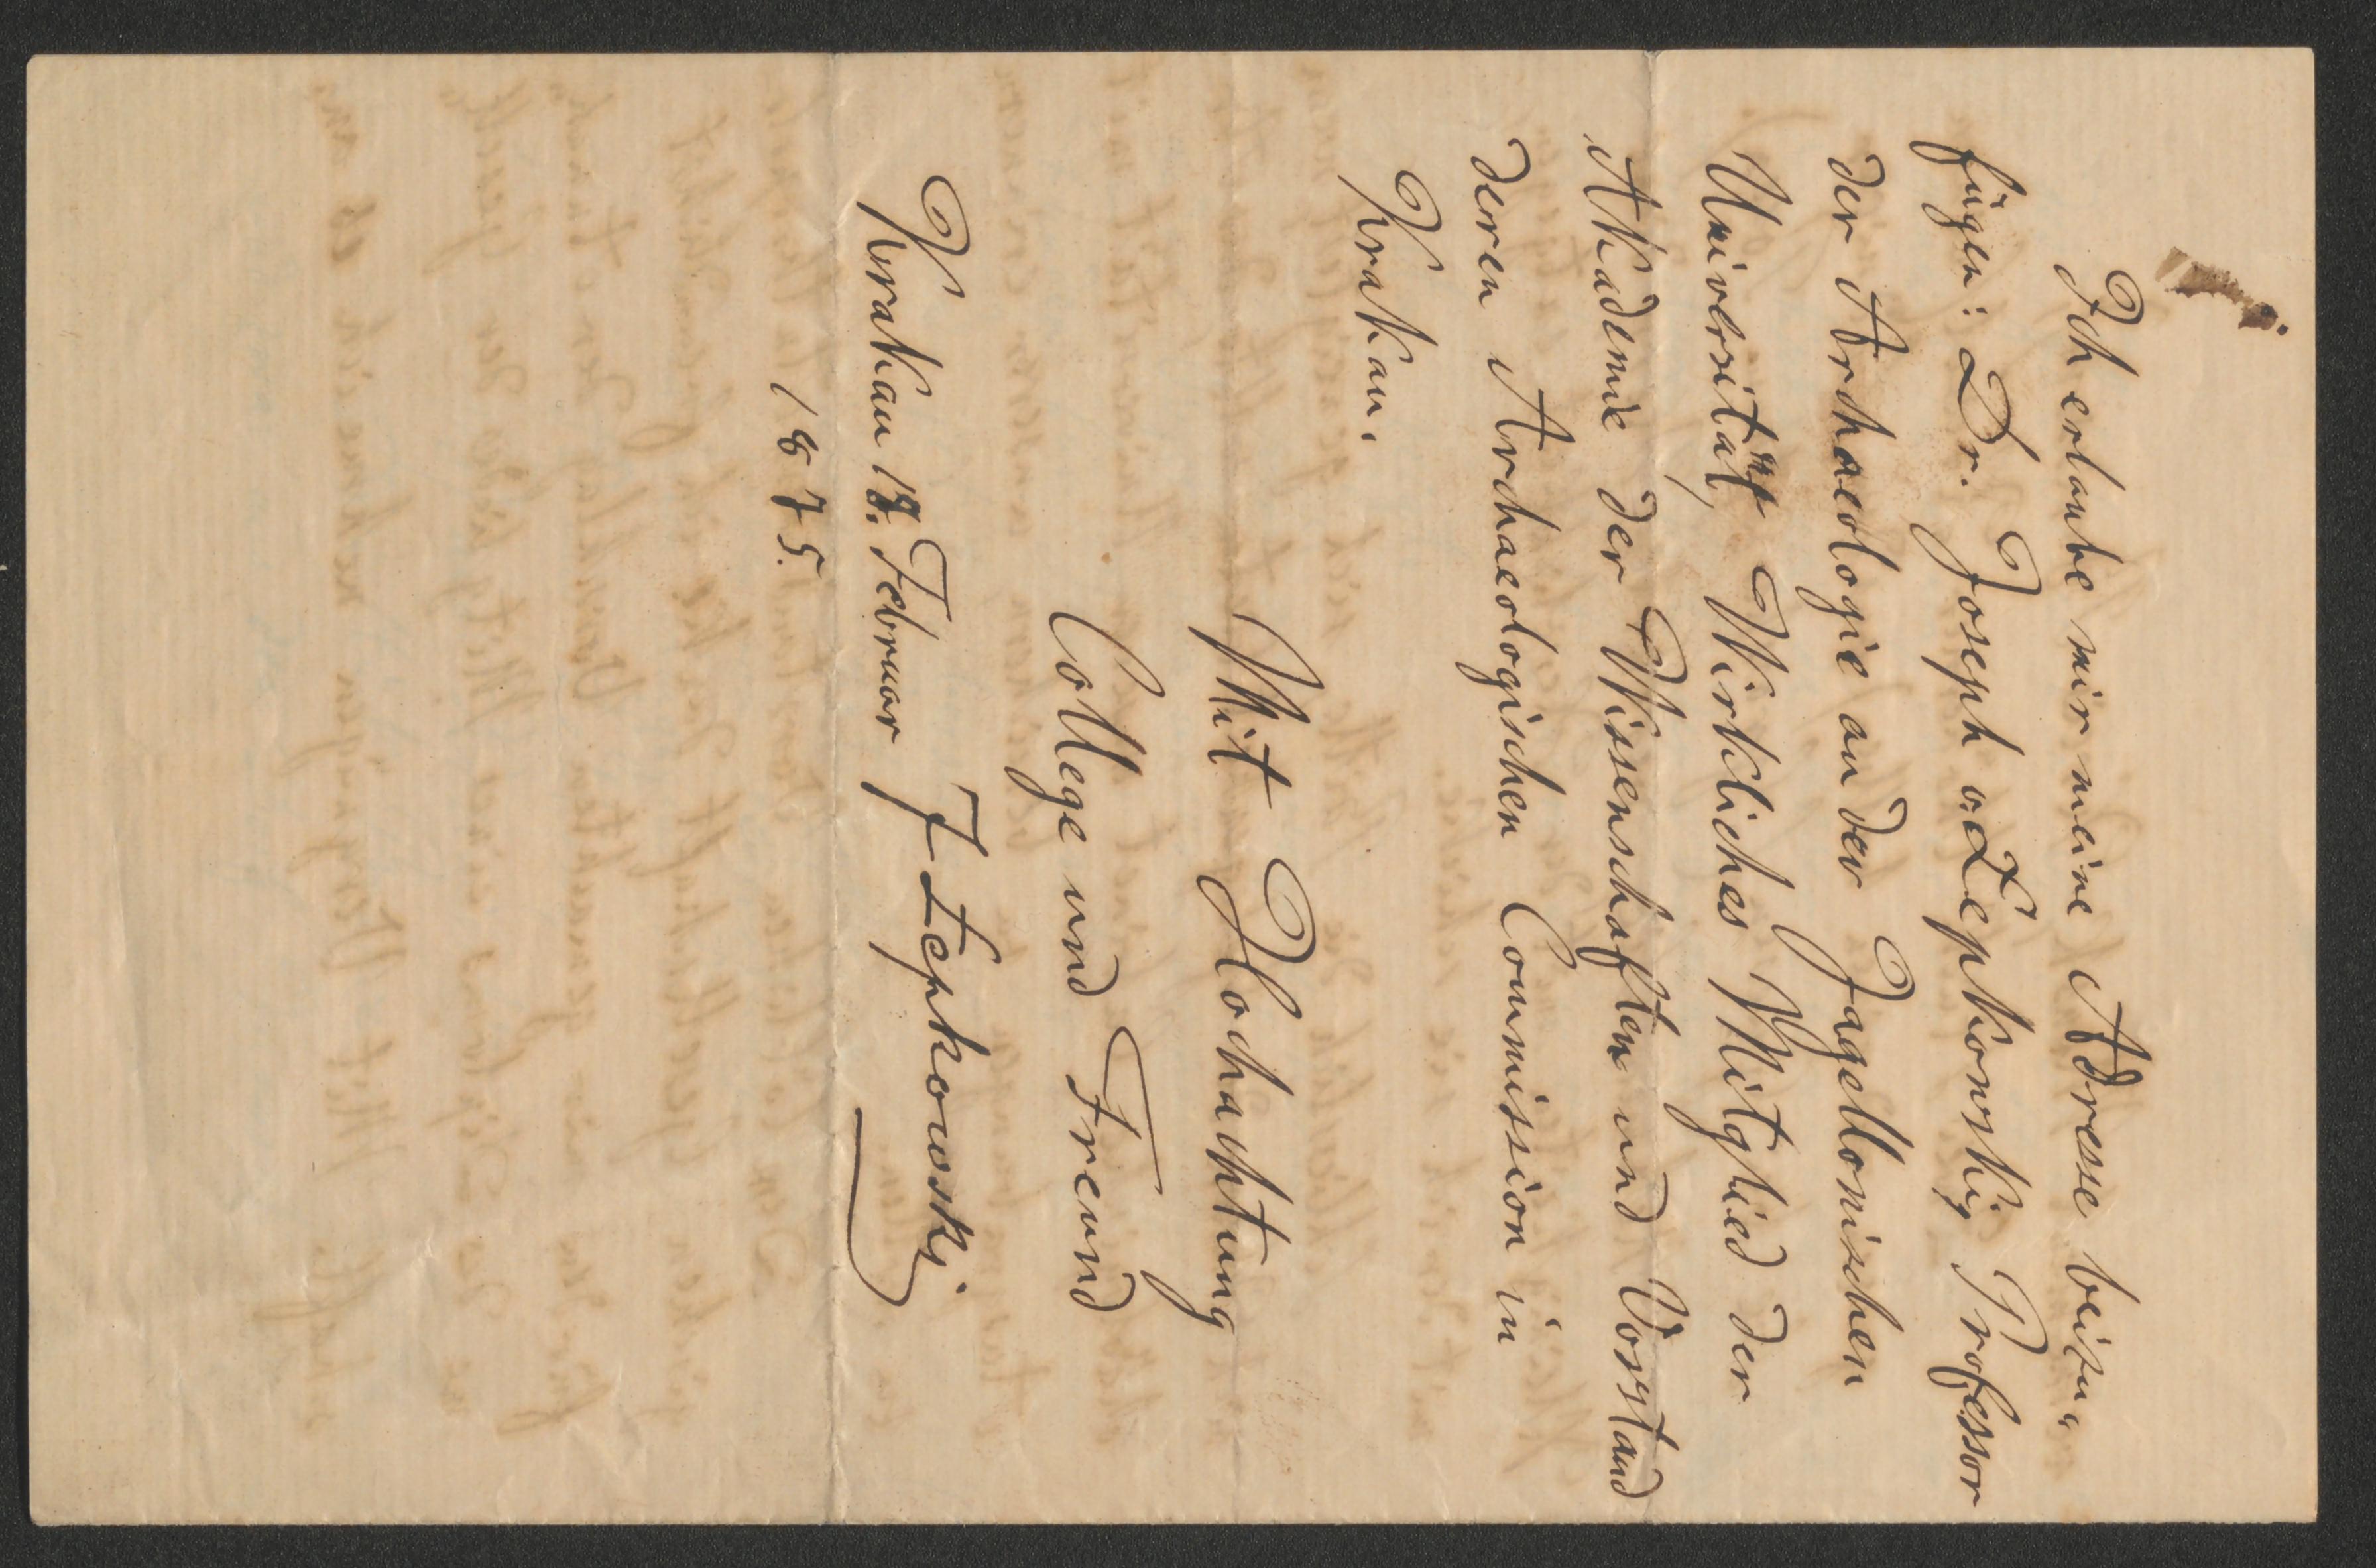 Ich erlaube mir meine Adresse beizu„
fügen: Dr. Joseph v. Łepkowski, Professor
der Archaeologie an der Jagellonischen
Universität, Wirkliches Mitglied der
Akademie der Wissenschaften und Vorstand
deren Archaeologischen Commission in
Krakau.
Mit Hochachtung
College und Freund
J Łepkowski
Krakau 17. Februar
1875.